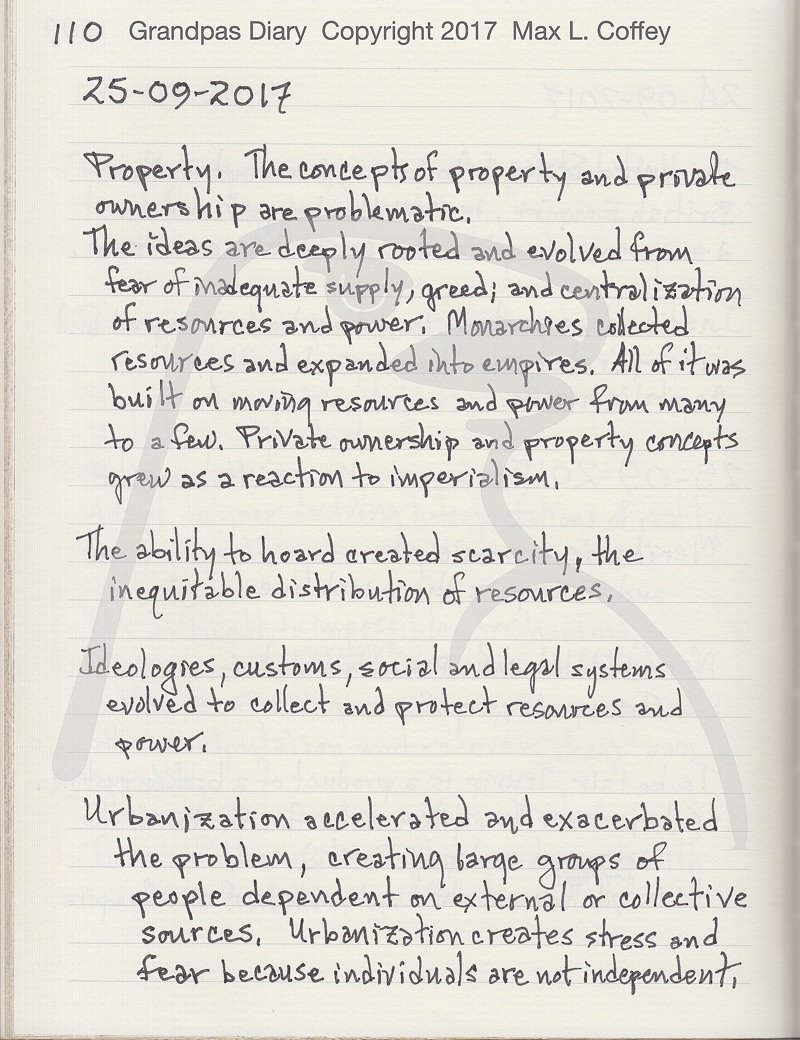 110 Grandpas Diary Copyright 2017 Max L. Coffey
25-09-2017
Property. The concepts of property and private
ownership are problematic.
The ideas are deeply rooted and evolved from
fear of inadequate supply, greed; and centralization
of resources and power. Monarchies collected
resources and expanded into empires. All of it was
built on moving resources and power from many
to a few. Private ownership and property concepts
grew as a reaction to imperialism.
The ability to hoard created scarcity, the
inequitable distribution of resources.
Ideologies, customs, social and legal systems
evolved to collect and protect resources and
power.
Urbanization accelerated and exacerbated
the problem, creating large groups of
people dependent on external or collective
sources. Urbanization creates stress and
fear because individuals are not independent.